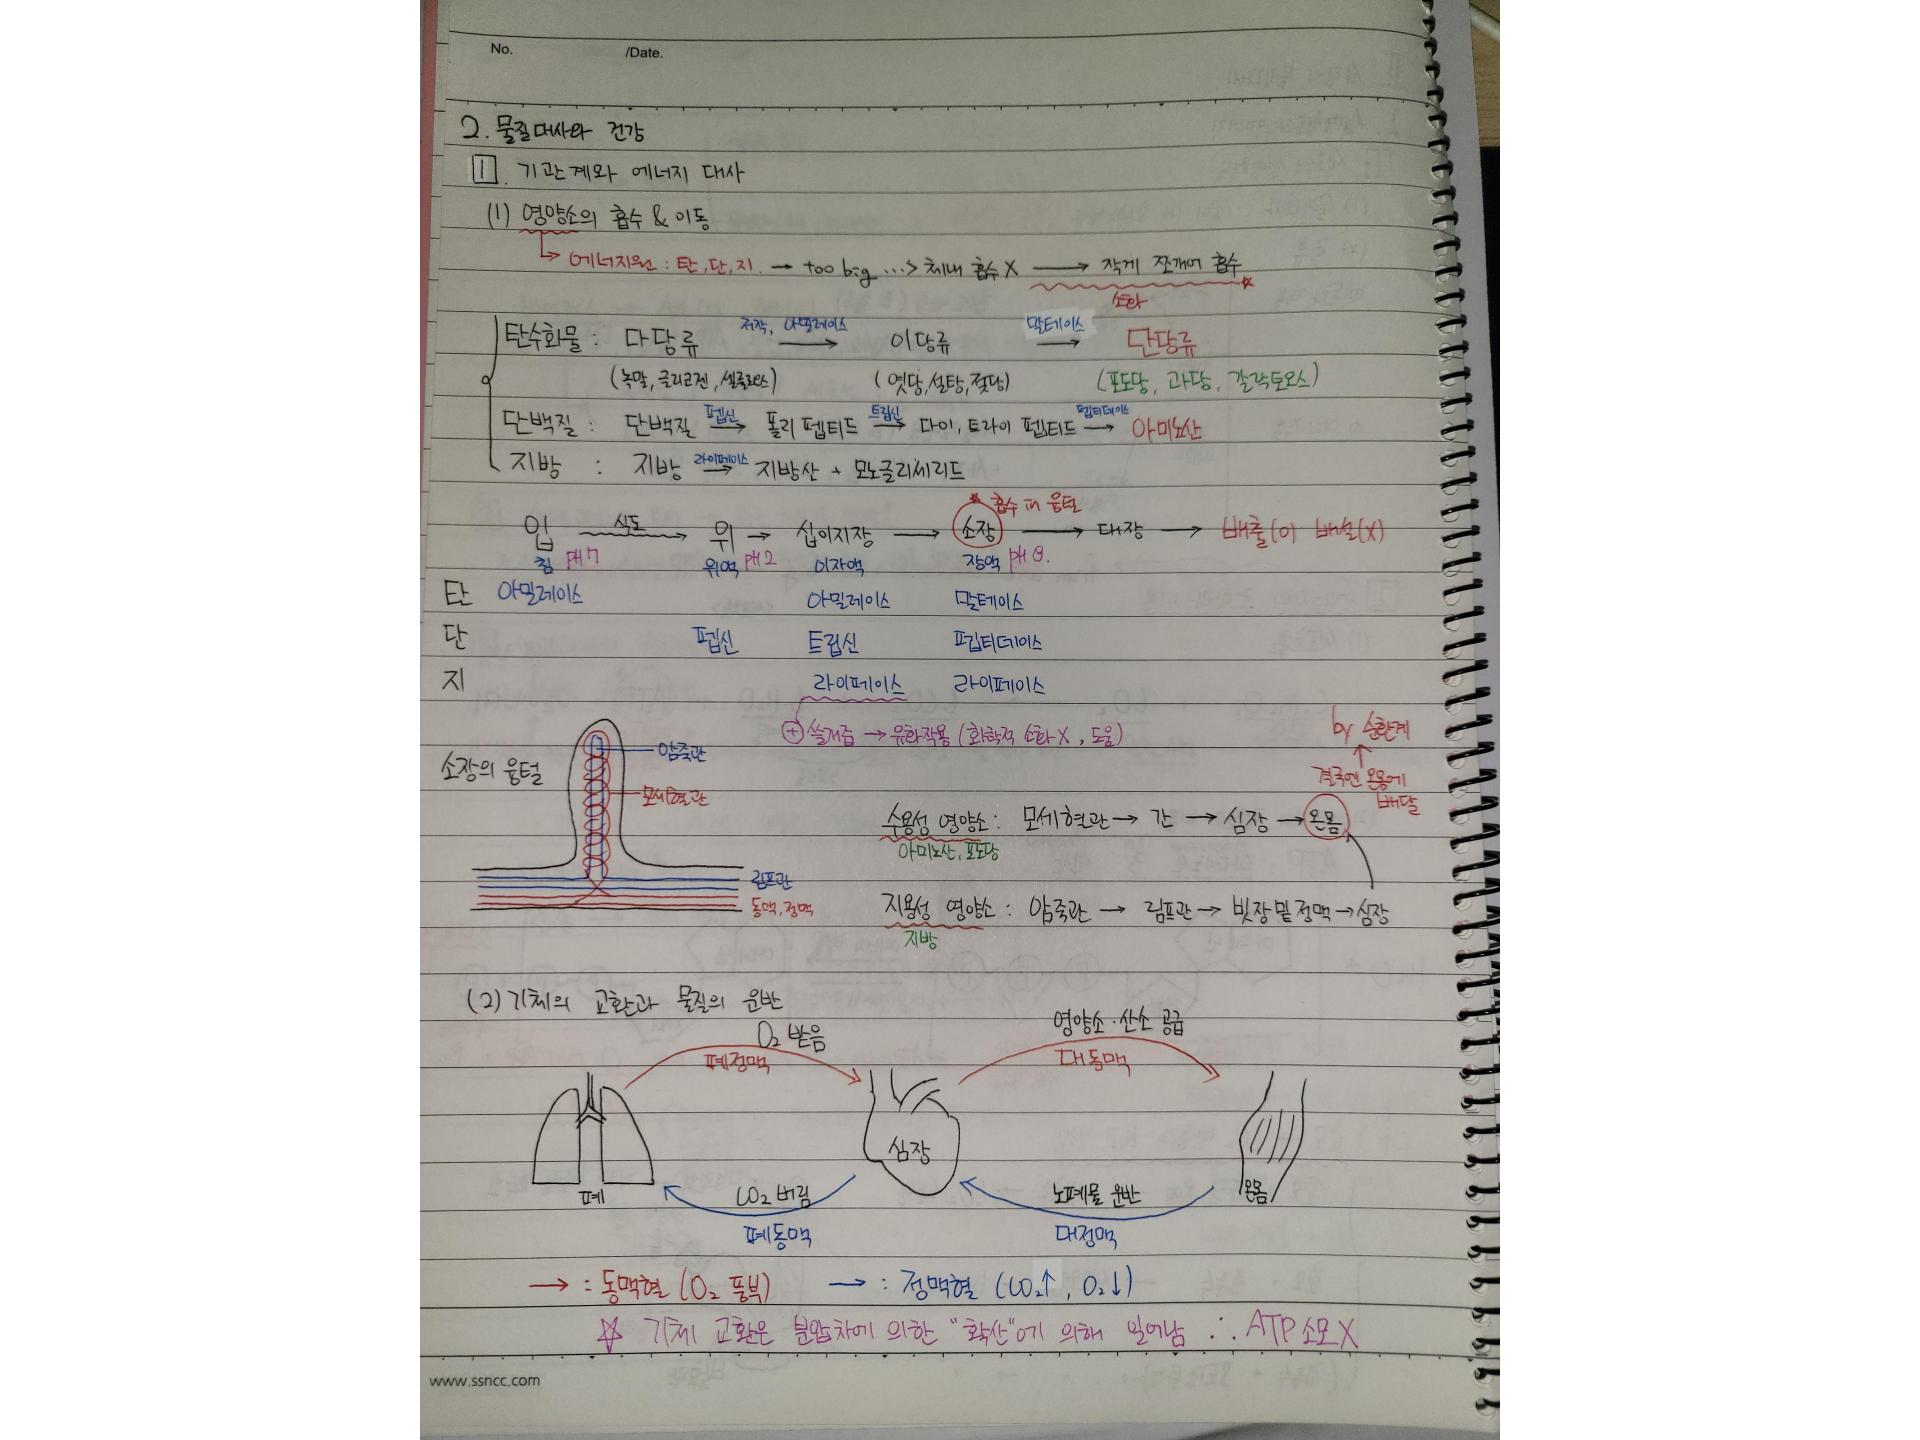 No. /Date.
2. 물질대사와 건강
1. 기관계와 에너지 대사
(1) 영양소의 흡수 & 이동
↳ 에너지원 : 탄, 단, 지. → too big ⋯> 체내 흡수 X → 작게 쪼개어 흡수
소화
탄수화물 : 다당류 저작, 아밀레이스 → 이당류 말테이스 → 단당류
(녹말, 글리코젠, 셀룰로스) (엿당, 설탕, 젖당) (포도당, 과당, 갈락토오스)
단백질 : 단백질 펩신 → 폴리펩티드 트립신 → 다이, 트라이 펩티드 펩티데이스 → 아미노산
지방 : 지방 라이페이스 → 지방산 + 모노글리세리드
★ 흡수 in 융털
입 식도 → 위 → 십이지장 → 소장 → 대장 → 배출(O) 배설(X)
침 pH 7 위액 pH 2 이자액 장액 pH 8.
탄 아밀레이스 아밀레이스 말테이스
단 펩신 트립신 펩티데이스
지 라이페이스 라이페이스
⊕ 쓸개즙 → 유화작용 (화학적 소화 X, 도움)
소장의 융털
암죽관
모세혈관
림프관
동맥, 정맥
by 순환계
↑
결국엔 온몸에
배달
수용성 영양소 : 모세혈관 → 간 → 심장 → 온몸
아미노산, 포도당
지용성 영양소 : 암죽관 → 림프관 → 빗장밑정맥 → 심장
지방
(2) 기체의 교환과 물질의 운반
O₂ 받음 영양소·산소 공급
폐정맥 대동맥
심장
폐 CO₂ 버림 노폐물 운반 온몸
폐동맥 대정맥
→ : 동맥혈 (O₂ 풍부) → : 정맥혈 (CO₂↑, O₂↓)
☆ 기체 교환은 분압차에 의한 "확산"에 의해 일어남 ∴ ATP 소모 X
www.ssncc.com